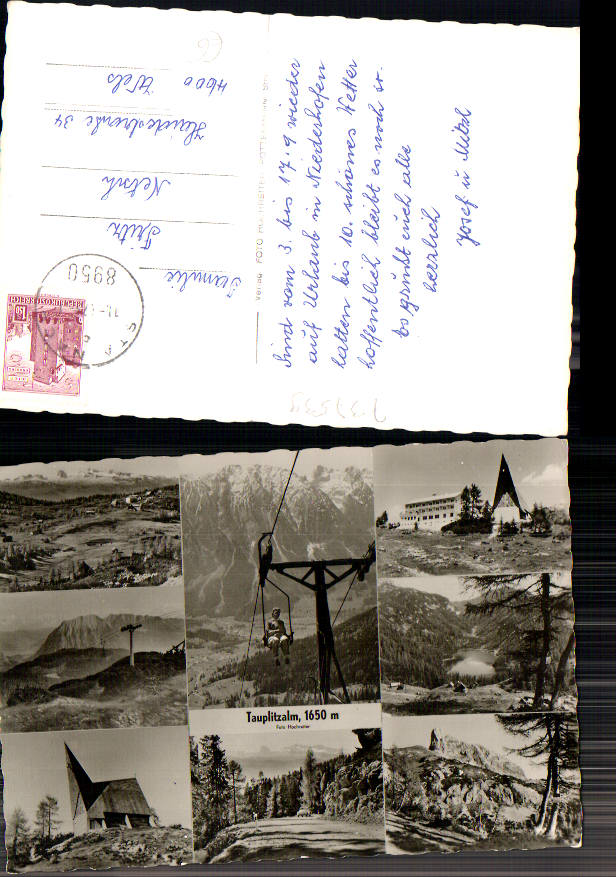 Sind vom 3. bis 17. 9 wieder
auf Urlaub in Niederhofen
hatten bis 10. schönes Wetter
hoffentlich bleibt es noch so.
Es grüßt euch alle
herzlich
Josef u Mitzl
Familie
Fritz
Netsch
Haidestraße 34
4600 Wels
8950
REPUBLIK ÖSTERREICH
1.50
Verlag FOTO HOCHREITER
Tauplitzalm, 1650 m
Foto Hochreiter